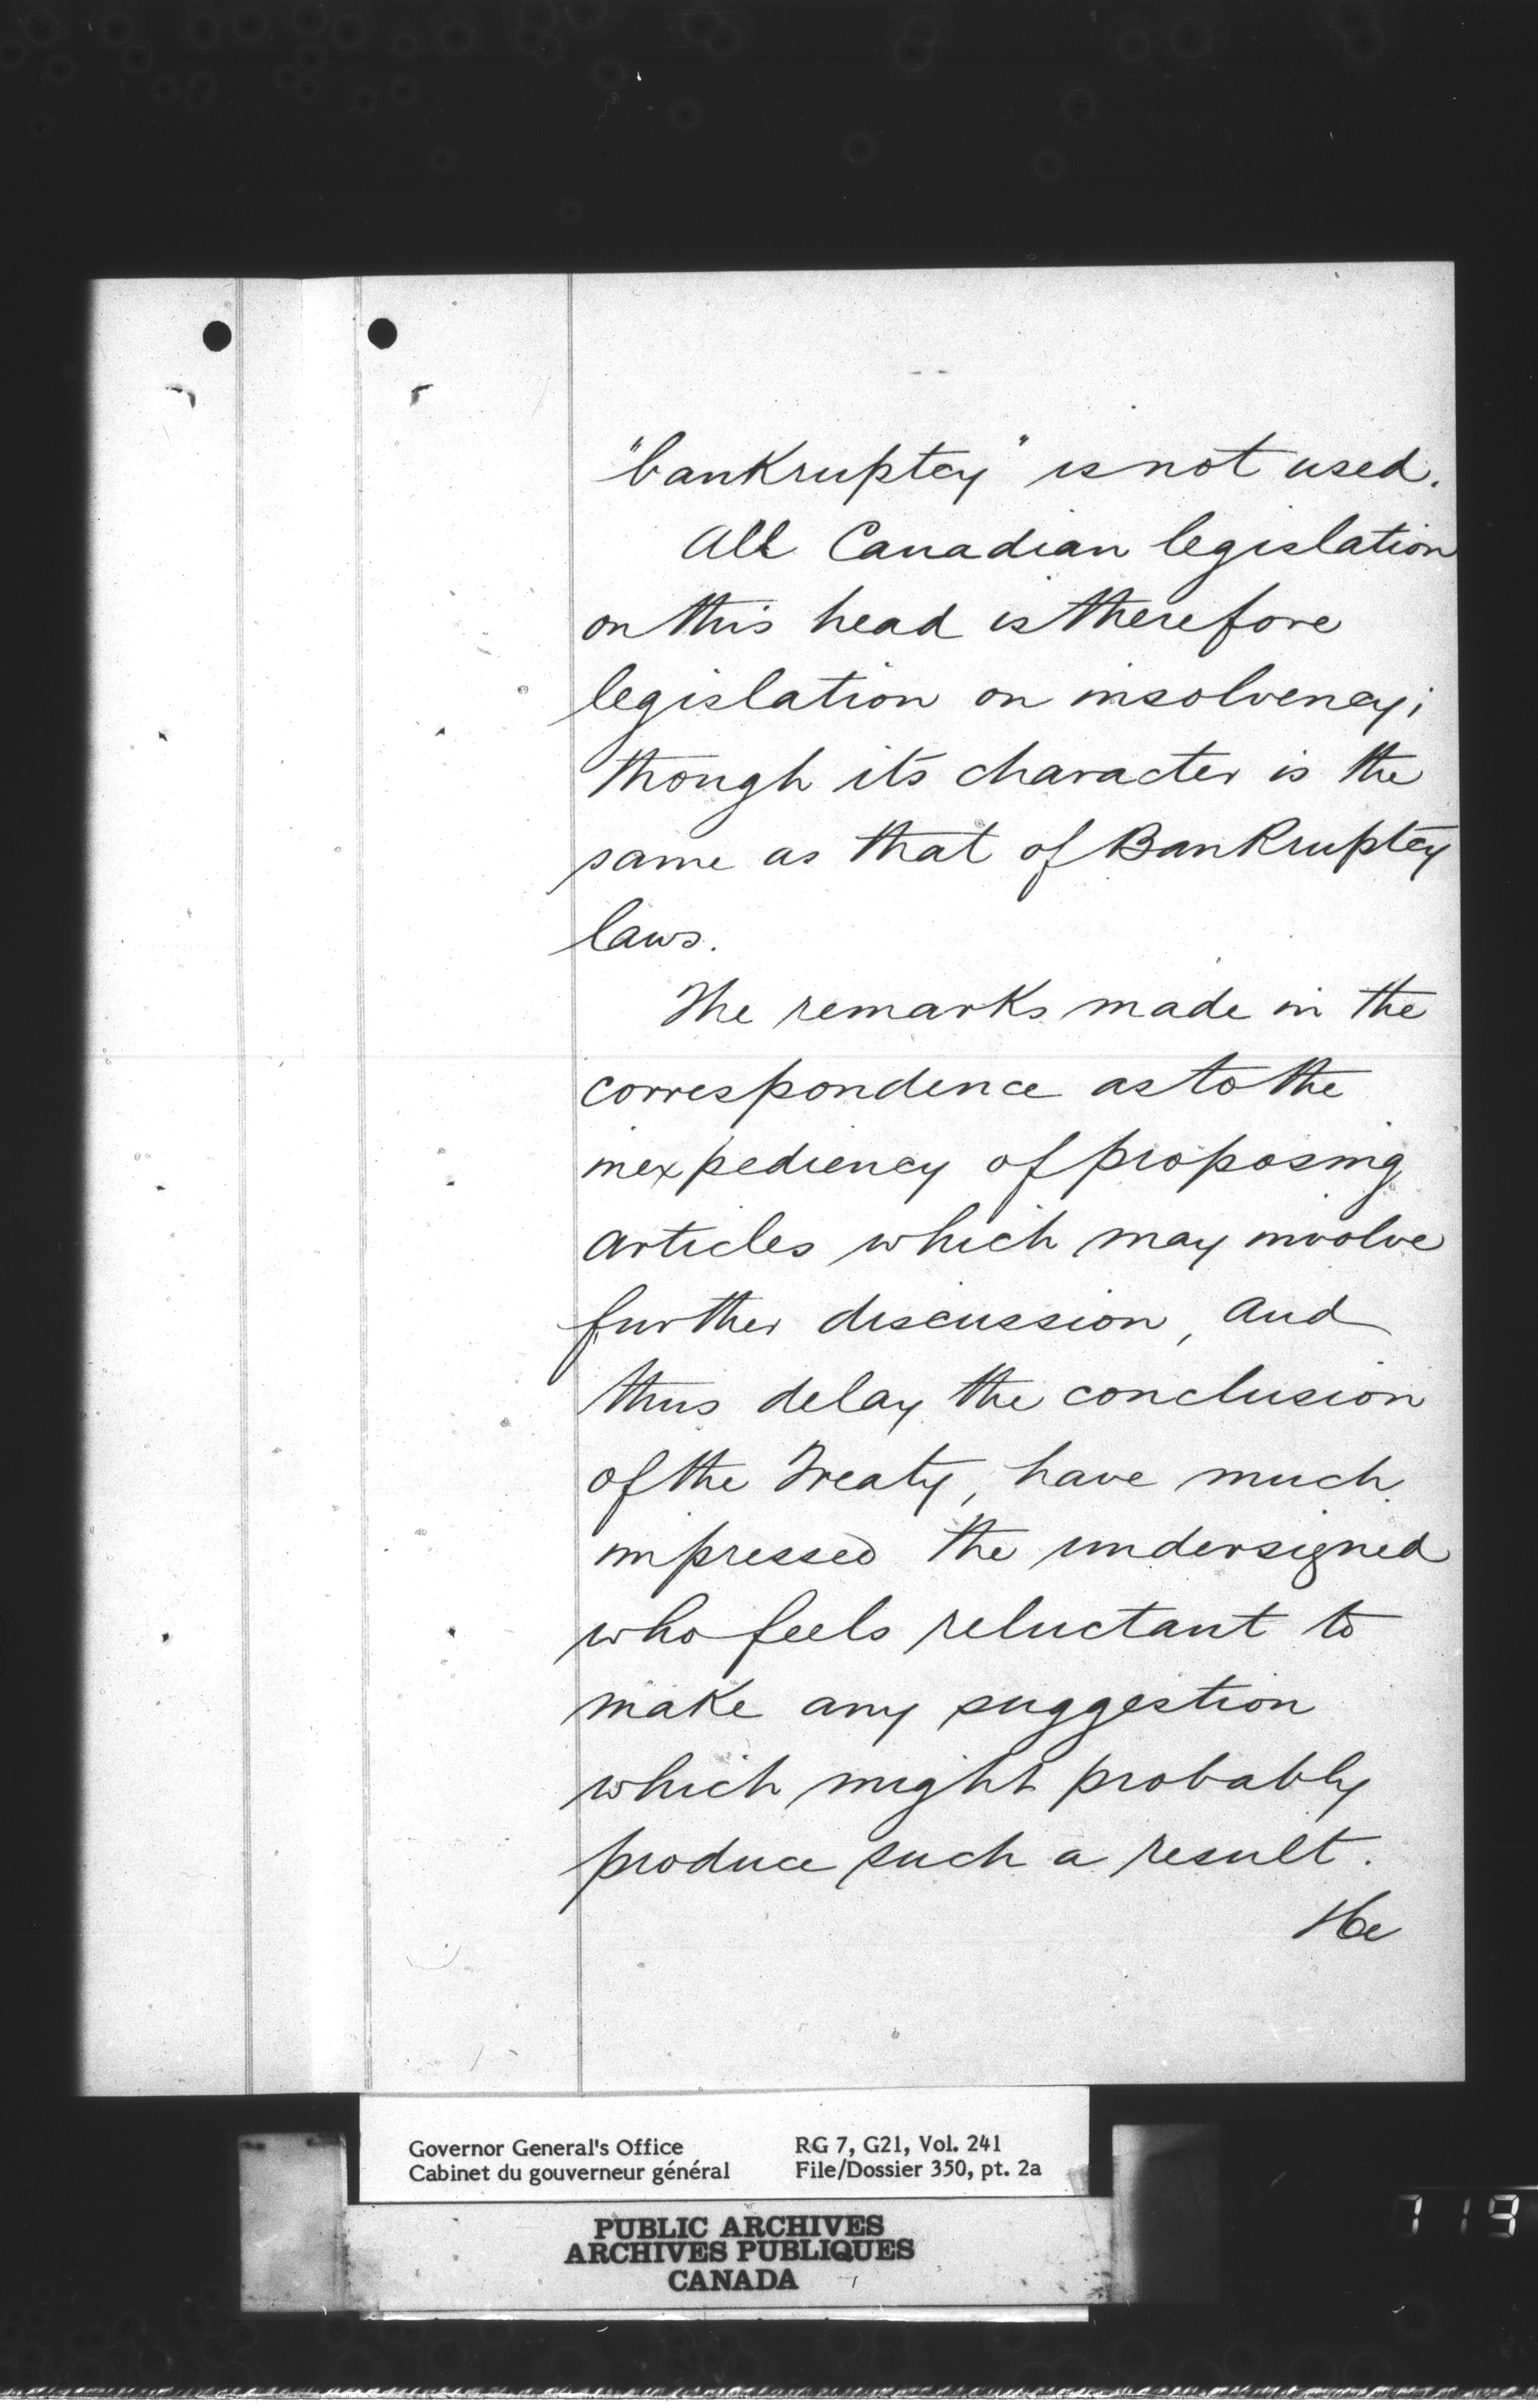 "bankruptcy" is not used.
All Canadian legislation
on this head is therefore
legislation on insolvency;
though its character is the
same as that of Bankruptcy
laws.
The remarks made in the
correspondence as to the
inexpediency of proposing
articles which may involve
further discussion, and
thus delay the conclusion
of the Treaty, have much
impressed the undersigned
who feels reluctant to
make any suggestion
which might probably
produce such a result.
He
Governor General's Office
Cabinet du gouverneur général
RG 7, G21, Vol. 241
File/Dossier 350, pt. 2a
PUBLIC ARCHIVES
ARCHIVES PUBLIQUES
CANADA
719